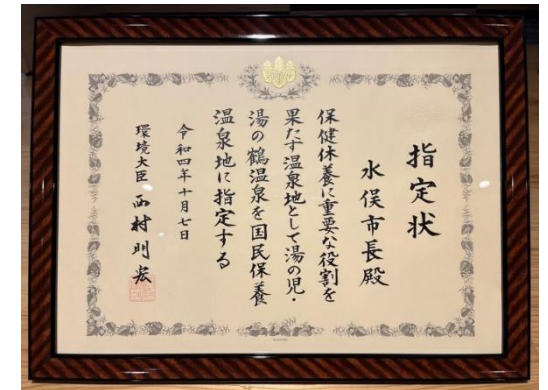 指定状
水俣市長殿
保健休養に重要な役割を
果たす温泉地として湯の児・
湯の鶴温泉を国民保養
温泉地に指定する
令和四年十月七日
環境大臣 西村明宏